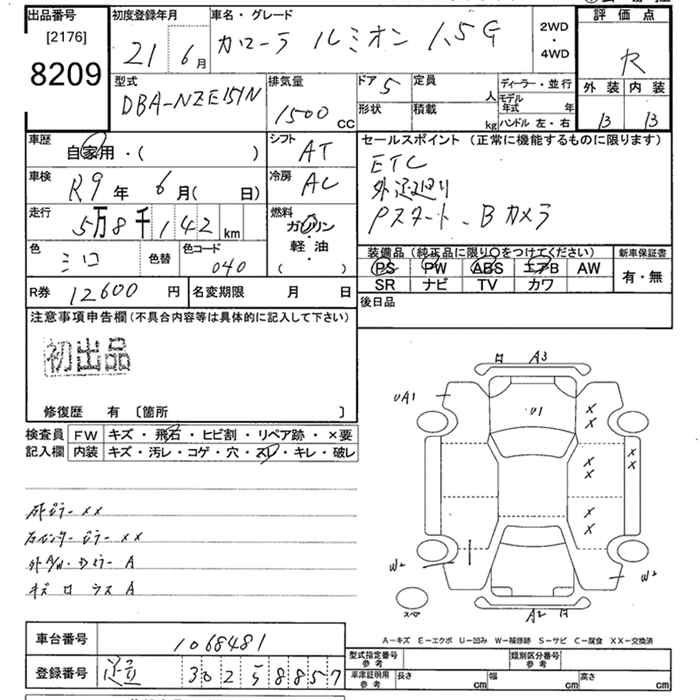 出品番号
[2176]
8209
初度登録年月
21 6月
車名・グレード
カローラ ルミオン 1.5G
2WD
・
4WD
評価点
R
外装 内装
B B
型式
DBA-NZE151N
排気量
1500 cc
ドア 5
定員
人
形状
積載
kg
ディーラー・並行
モデル年式 年
ハンドル 左・右
車歴
自家用・( )
シフト
AT
セールスポイント (正常に機能するものに限ります)
ETC
Pスタート、Bカメラ
車検
R9年 6月( 日)
冷房
AC
走行
5万8千142km
燃料
ガソリン
軽・油
( )
色
シロ
色替
色コード
040
装備品 (純正品に限り○をつけてください)
PS PW ABS エアB AW
SR ナビ TV カワ
新車保証書
有・無
R券 12600円
名変期限 月 日
後日品
注意事項申告欄(不具合内容等は具体的に記入して下さい)
初出品
修復歴 有 〔箇所 〕
検査員記入欄
FW キズ・飛石・ヒビ割・リペア跡・×要
内装 キズ・汚レ・コゲ・穴・スレ・キレ・破レ
右センターピラー ××
A3
UA1
U1
×
×
×
×
×
×
×
×
W2
W2
スペア
A2
A-キズ E-エクボ U-凹み W-補修跡 S-サビ C-腐食 XX-交換済
車台番号
1068481
登録番号
302 5 8857
型式指定番号
参考
類別区分番号
参考
車庫証明用
参考
長さ cm
幅 cm
高さ cm